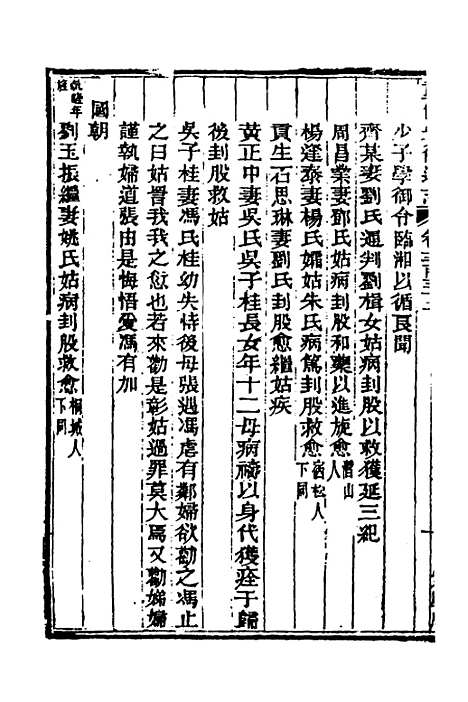 少子學御令臨湘以循良聞
齊某妻劉氏通判劉楫女姑病刲股以救獲延三紀
周昌業妻鄧氏姑病刲股和藥以進旋愈潛山人
楊逢泰妻楊氏孀姑朱氏病篤刲股救愈宿松人下同
貢生石思琳妻劉氏刲股愈繼姑疾
黃正中妻吳氏吳子桂長女年十二母病禱以身代獲痊于歸
後刲股救姑
吳子桂妻馮氏桂幼失恃後母張遇馮虐有鄰婦欲勸之馮止
之曰姑詈我我之愆也若來勸是彰姑過罪莫大焉又勸娣婦
謹執婦道張由是悔悟愛馮有加
國朝
乾隆年旌劉玉振繼妻姚氏姑病刲股救愈桐城人下同